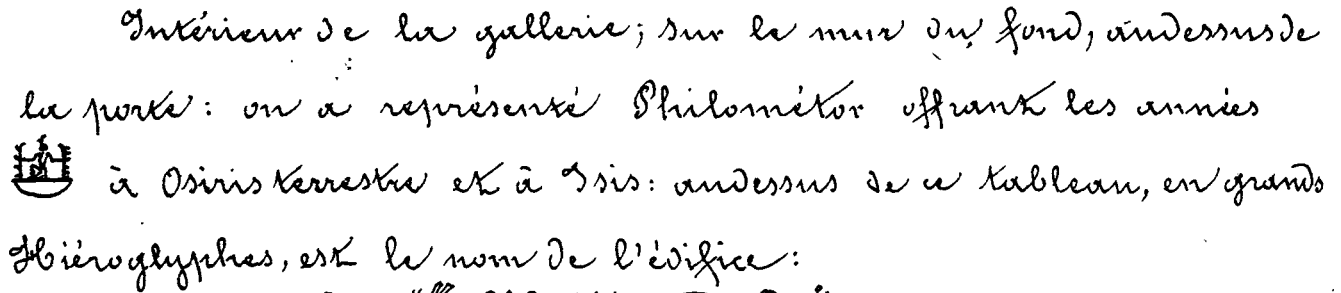 Intérieur de la gallerie; sur le mur du fond, audessus de
la porte: on a représenté Philométor offrant les années
à Osiris terrestre et à Isis: audessus de ce tableau, en grands
Hiéroglyphes, est le nom de l'édifice: